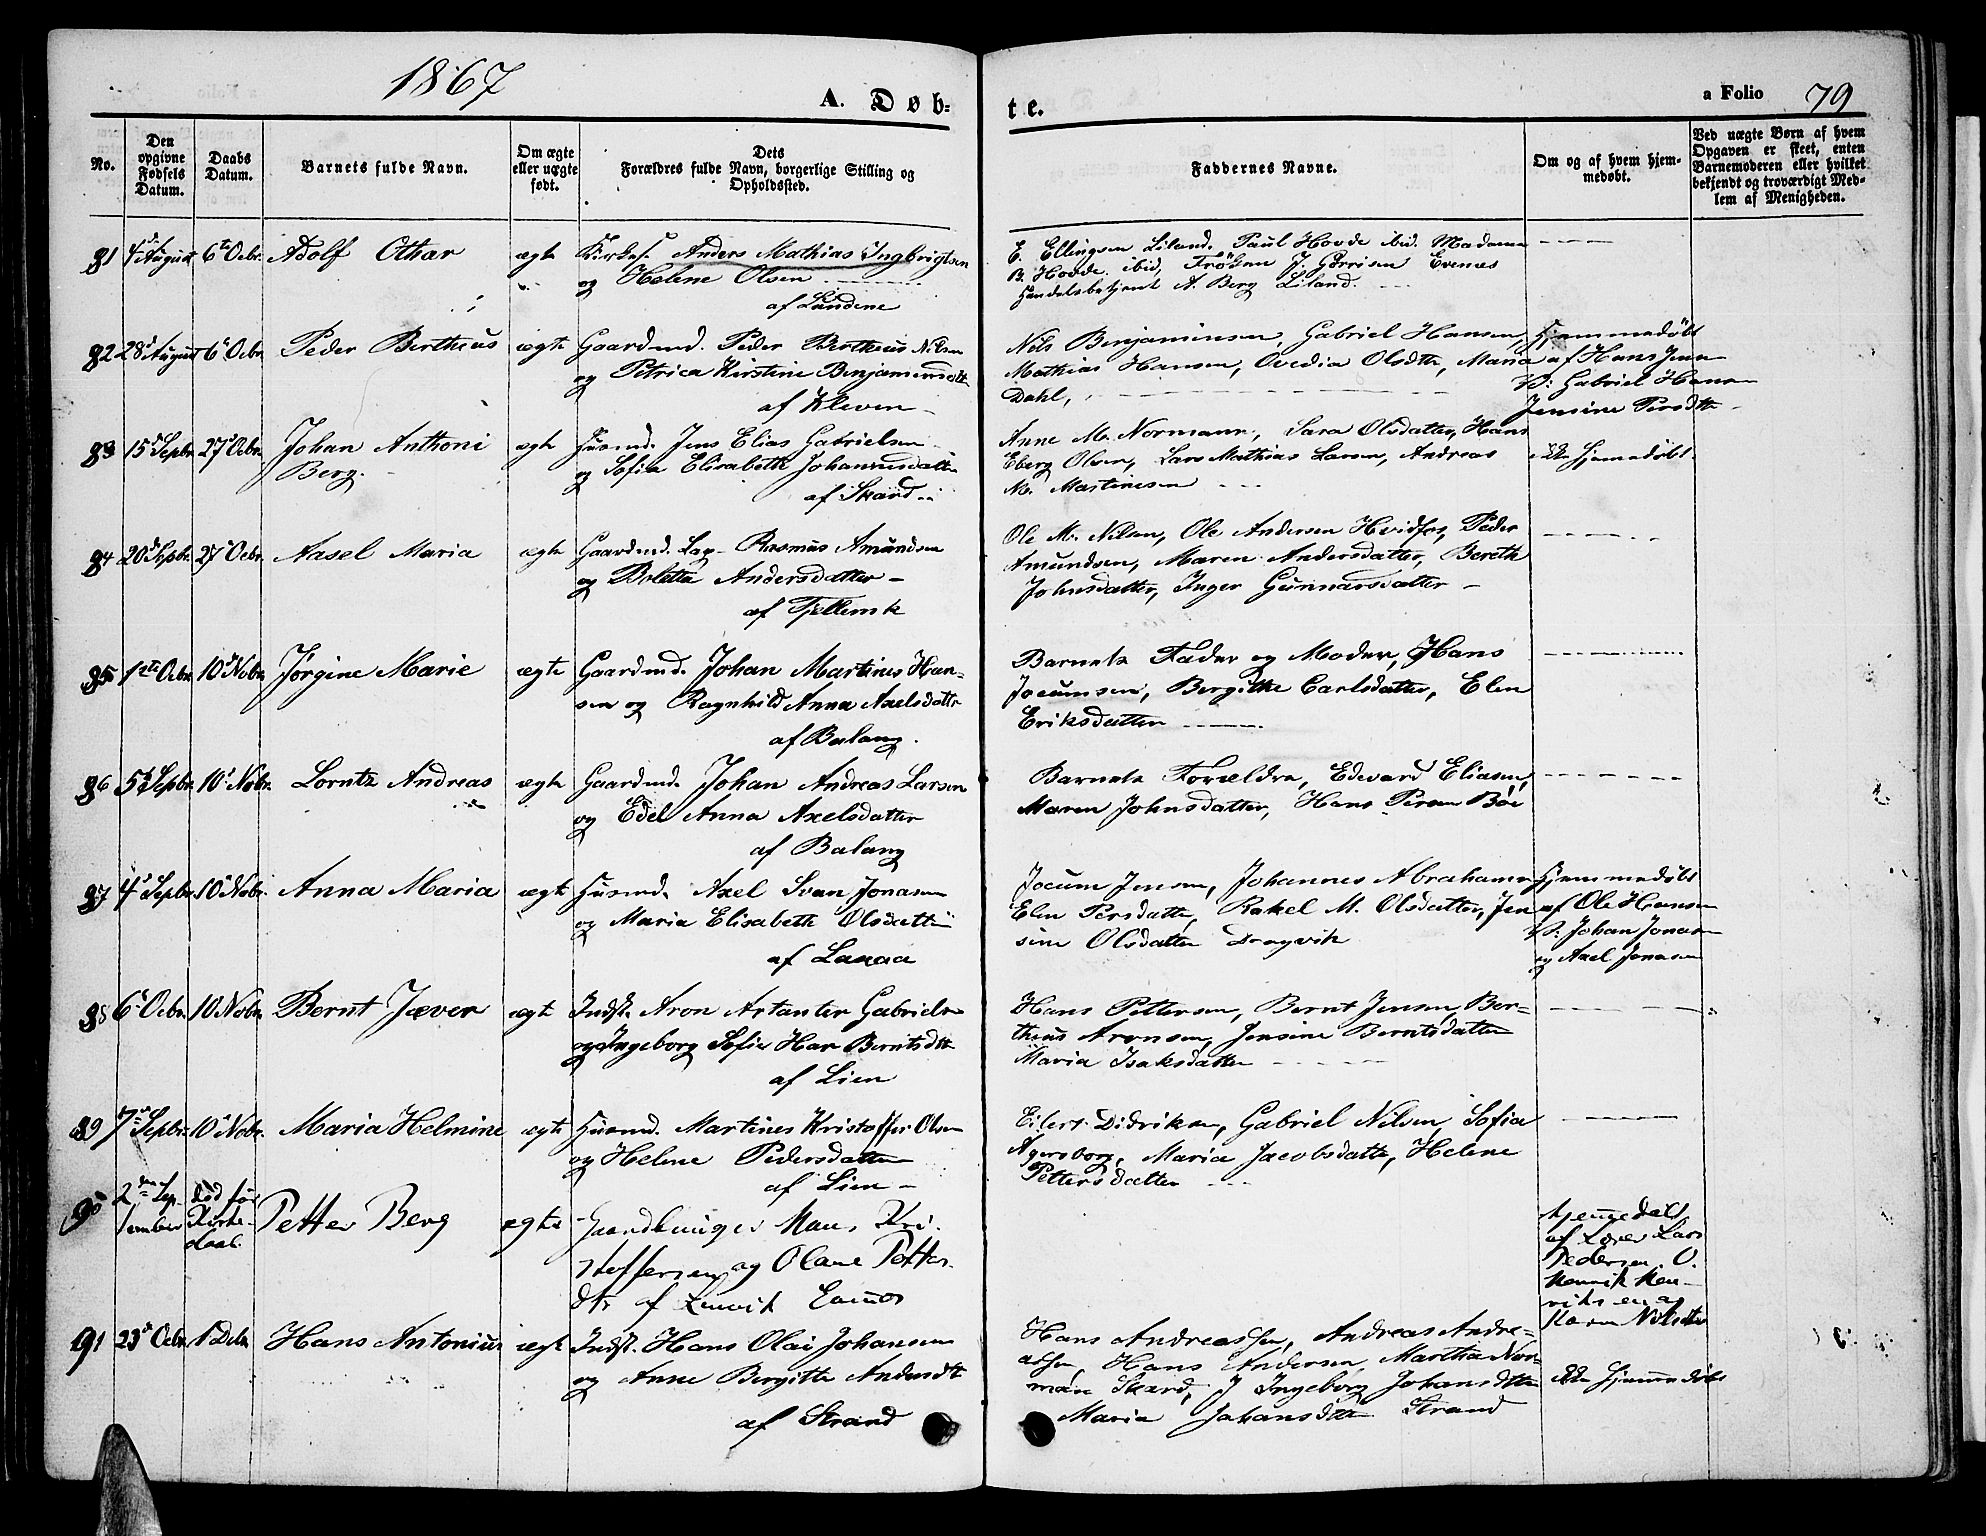 1867
A. Døb-
te.
a Folio 79
No.
Den opgivne Fødsels Datum.
Daabs Datum.
Barnets fulde Navn.
Om ægte eller uægte født.
Dets Forældres fulde Navn, borgerlige Stilling og Opholdssted.
Faddernes Navne.
Om og af hvem hjemmedøbt.
Ved uægte Børn af hvem Opgaven er skeet, enten Barnemoderen eller hvilket bekjendt og troværdigt Medlem af Menigheden.
81 4de August 6te Ocbr. Adolf Othar ægte Kirkes. Anders Mathias Ingbrigtsen
og Helene Olsen
af Sandene
E. Ellingsen Liland. Paul Hovde ibid. Madame
B. Hovde ibid, Frøken J. Gørrisen Evenes
Handelsbetjent A. Berg Liland.
82 28d August 6te Ocbr. Peder Bertheus ægte Gaardmd. Peder Bertheus Nilsen
og Petrica Kirstine Benjaminsdtr
af Kleven
Nils Benjaminsen, Gabriel Hansen,
Mathias Hansen, Ovedia Olsdtr, Maria
Dahl,
Hjemmedøbt
af Hans Jenn
V: Gabriel Hansn
Jensine Persdtr
83 15d Sepbr. 27d Ocbr. Johan Anthoni
Berg.
ægte Husmd. Jens Elias Gabrielsen
og Sofia Elisabeth Johannesdatter
af Skard
Anne M. Normann, Sara Olsdatter, Hans
Eberg Olsen, Lars Mathias Larsen, Andreas
M. Martinesen
ikke Hjemmedøbt
84 20d Sepbr. 27d Ocbr. Aasel Maria ægte Gaardmd. Lap- Rasmus Amundsen
og Boletta Andersdatter
af Fjellemk
Ole M. Nilsen, Ole Andersen Hvidfos, Peder
Amundsen, Maren Andersdatter, Bereth
Johnsdatter, Inger Gunnarsdatter
85 1ste Ocbr. 10d Nobr. Jørgine Marie ægte Gaardmd. Johan Martinus Han-
sen og Ragnhild Anna Axelsdatter
af Balang.
Barnets Fader og Moder, Hans
Jocumsen, Bergithe Carlsdatter, Elen
Eriksdatter
86 5d Sepbr. 10d Nobr. Lorntz Andreas ægte Gaardmd. Johan Andreas Larsen
og Edel Anna Axelsdatter
af Balang
Barnets Forældre, Edevard Eliasen,
Maren Johnsdatter, Hans Persen Bøe
87 4d Sepbr. 10d Nobr. Anna Maria ægte Husmd. Axel Svan Jonasen
og Maria Elisabeth Olsdatter
af Lanaa
Jocum Jensen, Johannes Abrahamsn
Elen Persdatter, Rakel M. Olsdatter, Jen
sine Olsdatter Dragvik
Hjemmedøbt
af Ole Hansen
V: Johan Jonasn
og Axel Jonasen
88 6d Ocbr. 10 Nobr. Bernt Jæver ægte Indst. Aron Artanter Gabrielsn
og Ingeborg Sofia Har Berntsdtr
af Lien
Hans Pettersen, Bernt Jensen, Ber-
theus Aronsen, Jensine Berntsdatter
Maria Isaksdatter
89 7d Sepbr. 10d Nobr. Maria Helmine ægte Husmd. Martines Kristoffer Olsen
og Helene Pedersdatter
af Lien
Eilert Didriksen, Gabriel Nilsen, Sofia
Agersborg, Maria Jacobsdatter, Helene
Pettersdatter
90 2den Sep-
tember død før
Kirke-
daab.
Petter Berg ægte Gaardbruger Maus Kri-
stoffersen og Olane Petter-
dtr af Lenvik Evenes
Hjemmedøbt
af Lærer Lars
Pedersen. O.
Henrik Hen-
riksen og
Karen Nilsdtr
91 23d Ocbr. 1 Debr. Hans Antonius ægte Indst. Hans Olai Johansen
og Anne Bergitte Andersdtr
af Strand
Hans Andreassen, Andreas Andre-
assen, Hans Andersen, Martha Nor-
man Skard, J Ingeborg Johansdtter
Maria Johansdtter Strand
ikke Hjemmedøbt